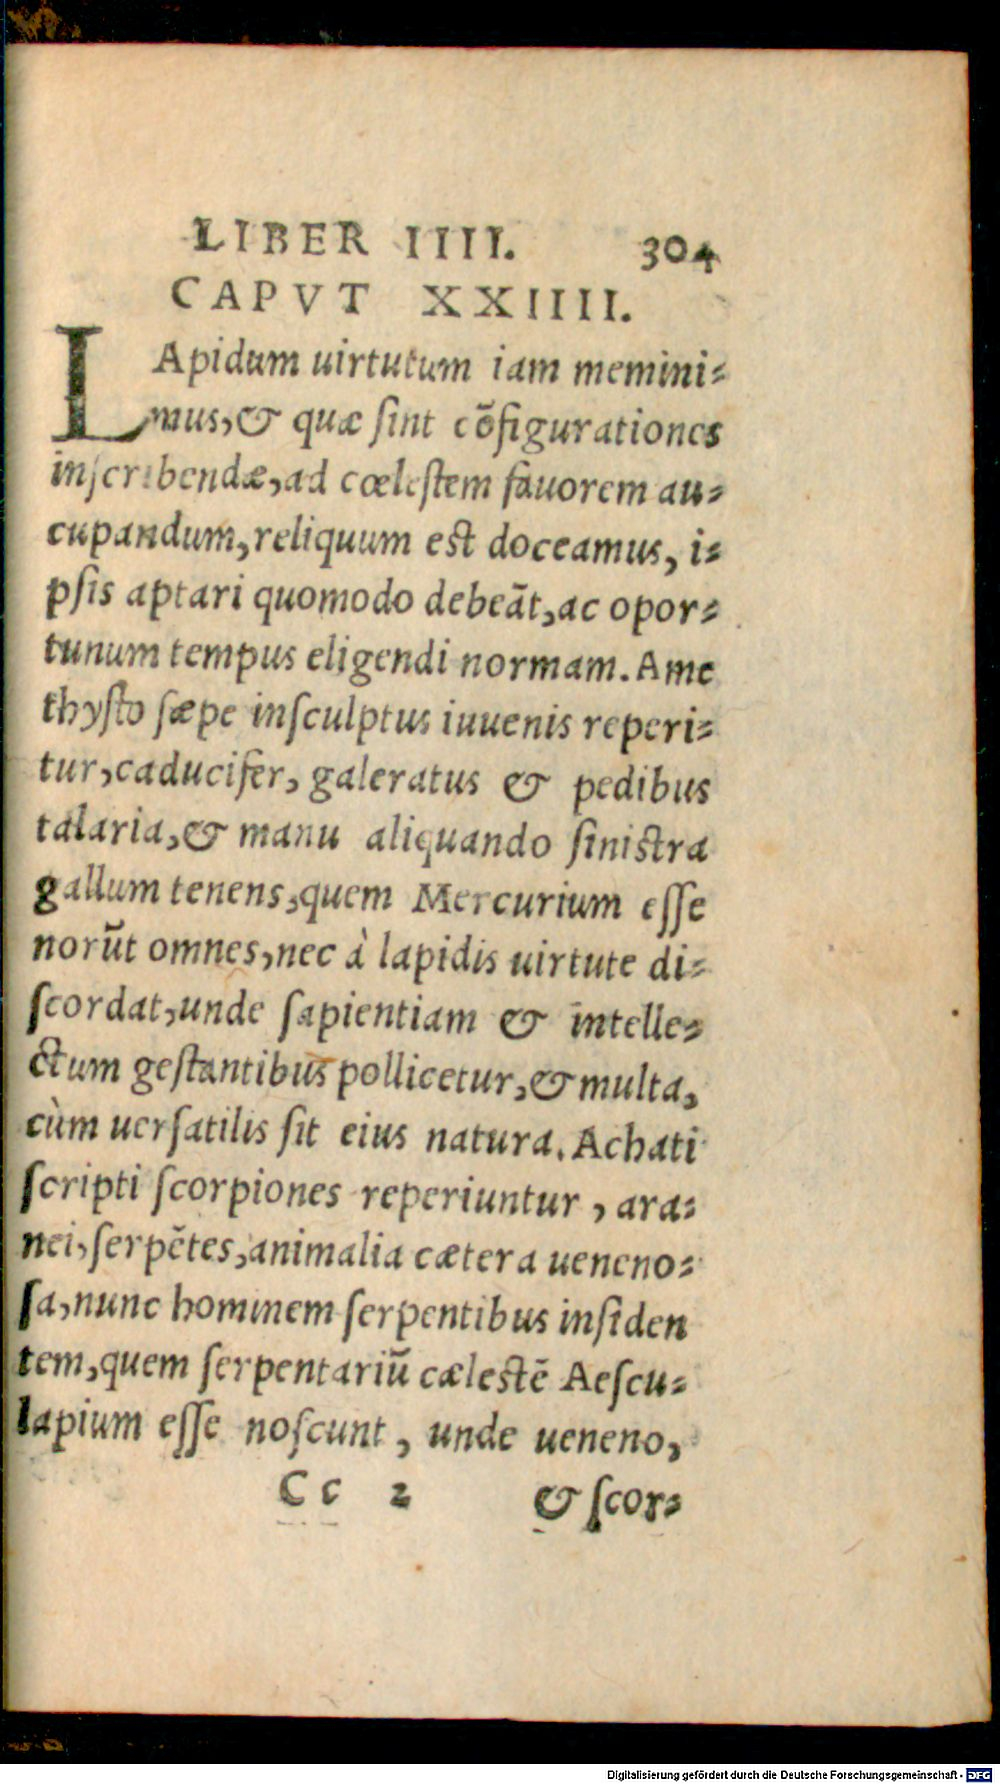 LIBER IIII. 304
CAPVT XXIIII.
LApidum uirtutum iam memini-
mus, & quæ ſint cōfigurationes
inſcribendæ, ad cœleſtem fauorem au-
cupandum, reliquum est doceamus, i-
pſis aptari quomodo debeāt, ac opor-
tunum tempus eligendi normam. Ame
thyſto ſæpe inſculptus iuuenis reperi-
tur, caducifer, galeratus & pedibus
talaria, & manu aliquando ſinistra
gallum tenens, quem Mercurium eſſe
norūt omnes, nec à lapidis uirtute di-
ſcordat, unde ſapientiam & intelle-
ctum geſtantibus pollicetur, & multa,
cùm uerſatilis ſit eius natura. Achati
ſcripti ſcorpiones reperiuntur, ara-
nei, ſerpētes, animalia cætera ueneno-
ſa, nunc hominem ſerpentibus inſiden
tem, quem ſerpentariū cælestē Aeſcu-
lapium eſſe noſcunt, unde ueneno,
Cc 2 & ſcor-
Digitalisierung gefördert durch die Deutsche Forschungsgemeinschaft - DFG